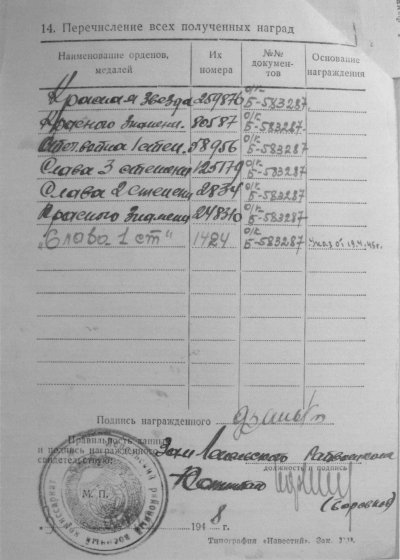 14. Перечисление всех полученных наград
Наименование орденов, медалей Их номера №№ документов Основание награждения
Красная Звезда 259876 о/к Б-583287
Красного Знамени 80587 о/к Б-583287
Отечств 1 степ. 58956 о/к Б-583287
Слава 3 степени 125179 о/к Б-583287
Слава 2 степени 2834 о/к Б-583287
Красного Знамени 248310 о/к Б-583287
"Слава 1 ст" 1424 о/к Б-583287 Указ от 19.4.45г.
Подпись награжденного
Правильность данных
и подпись награжденного
свидетельствую:
Зам
должность и подпись
М. П.
районный военный комиссариат
1948 г.
Типография «Известий». Зак.